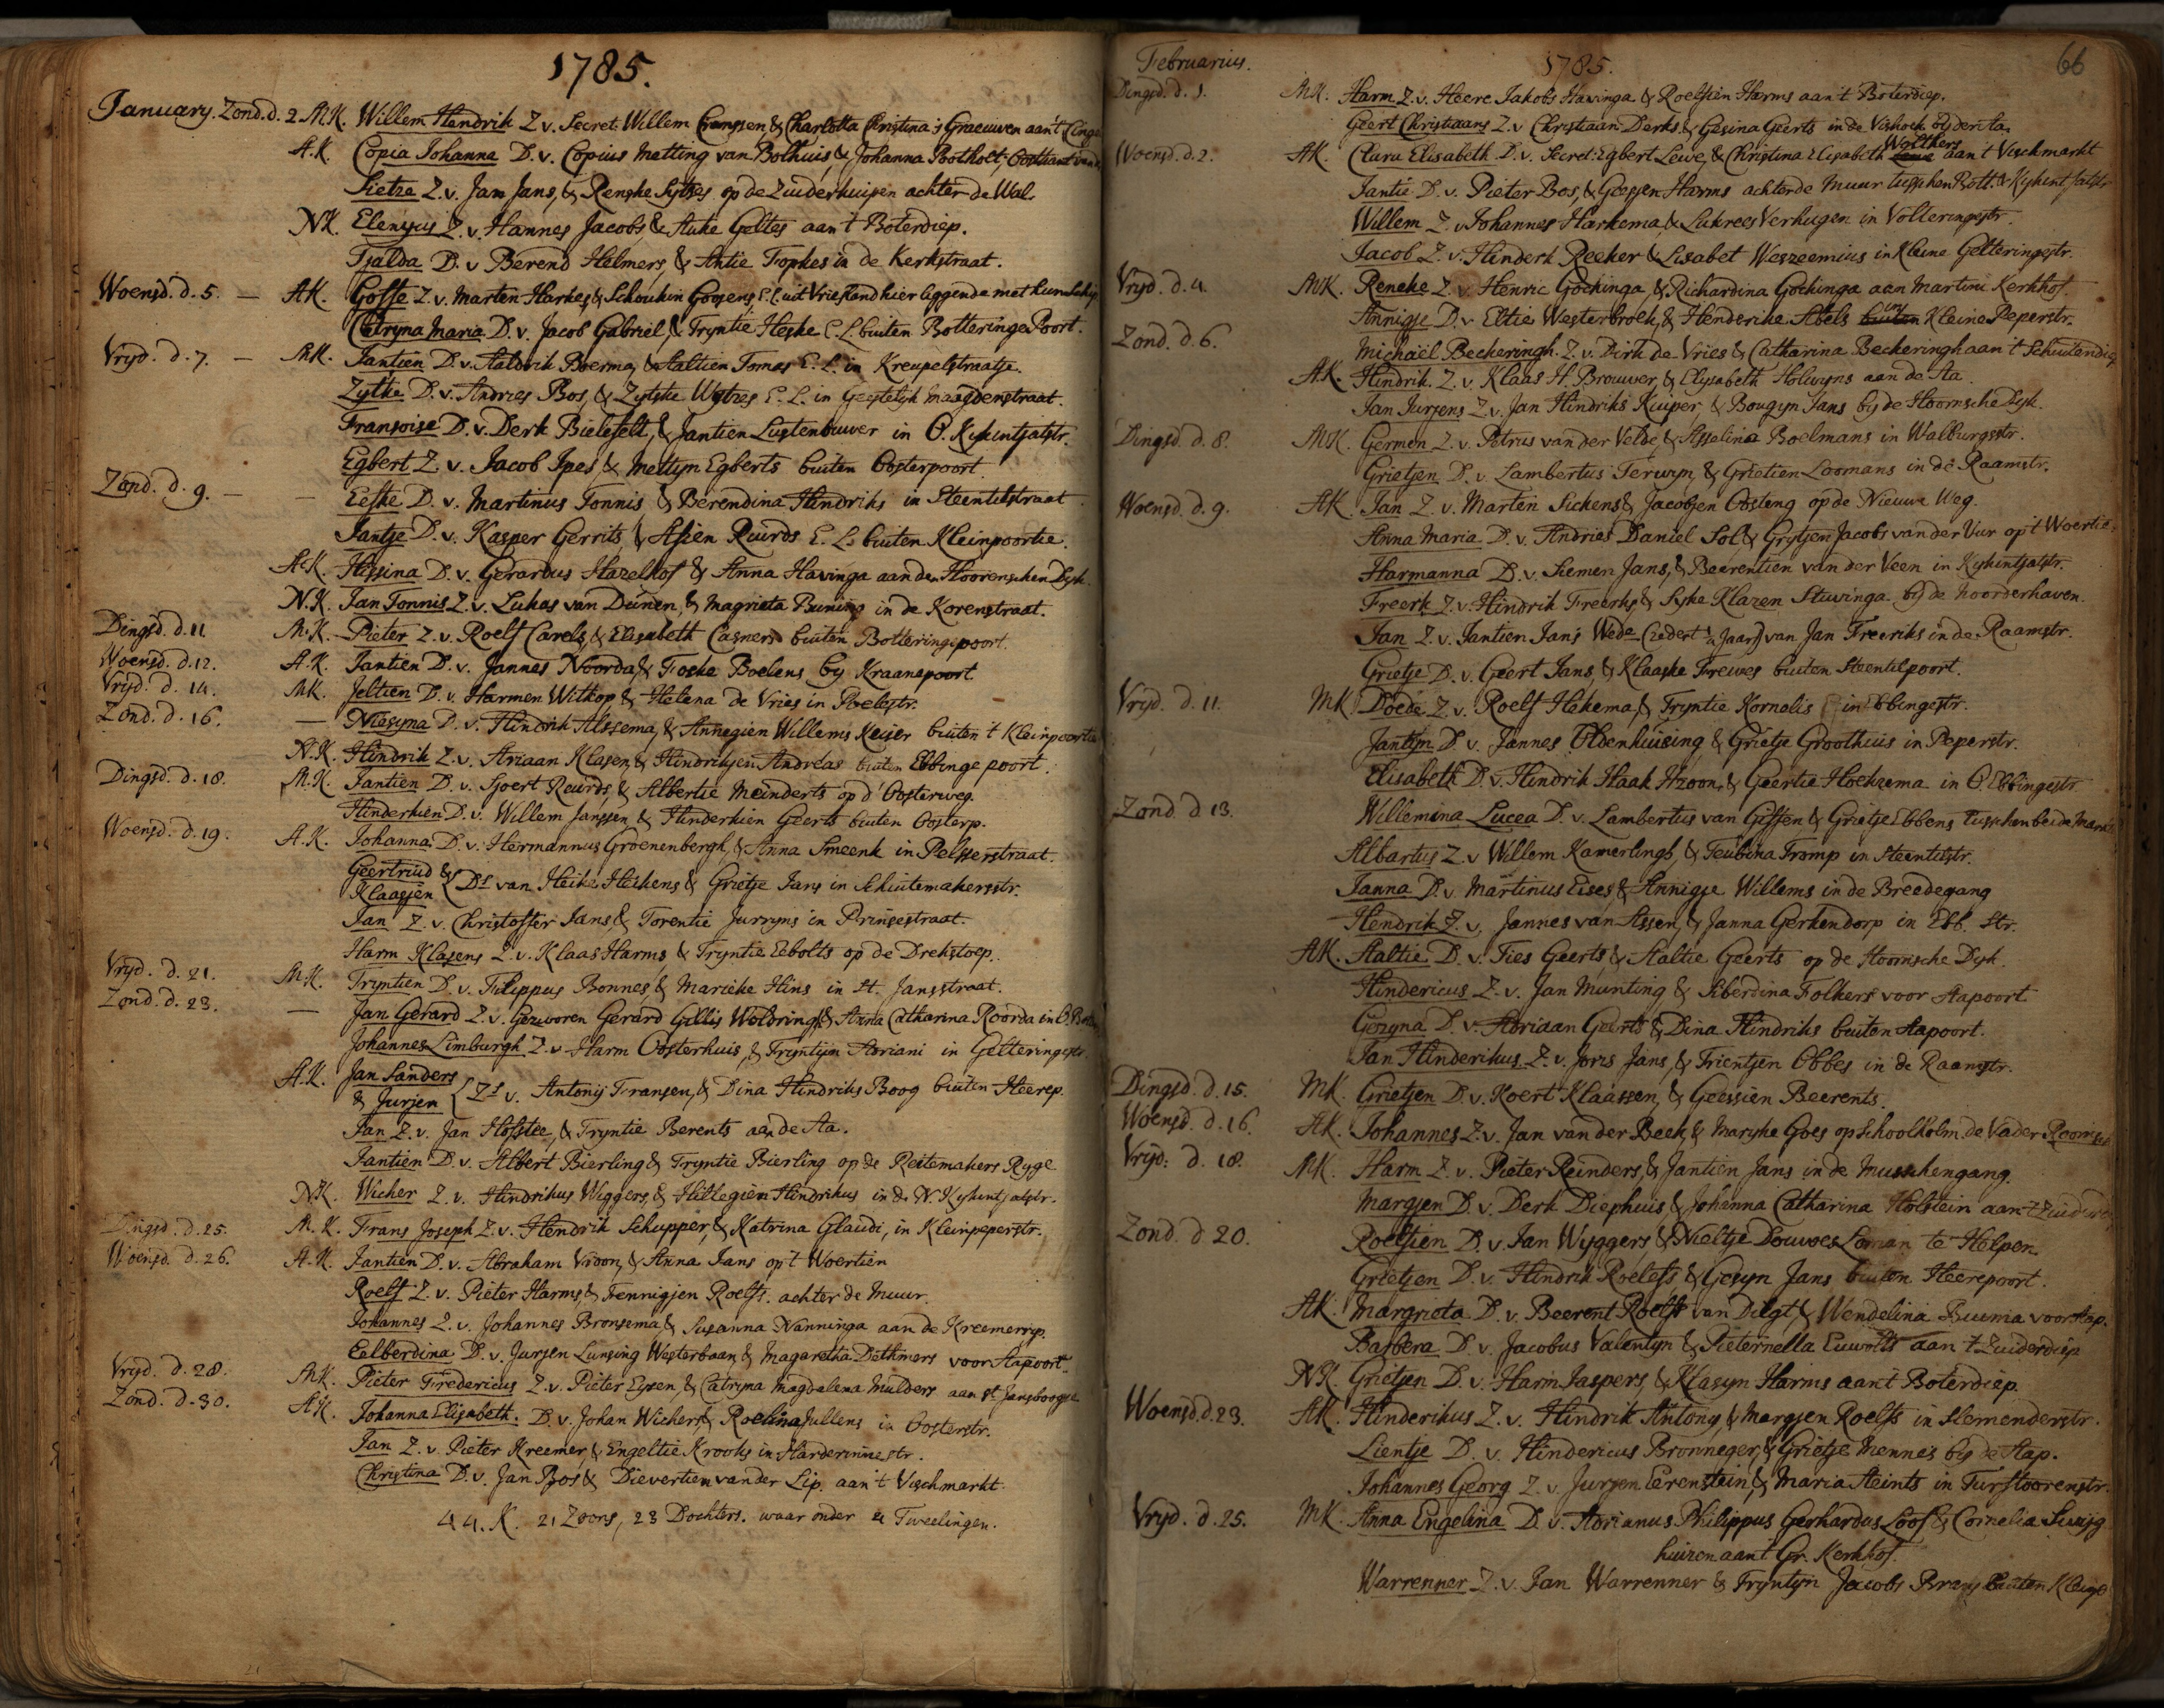 1785.
January. Zond. d. 2. M.K. Willem Hendrik Z. v. Secret: Willem & Charlotta Christina 's Graeuwen aan't
A.K. Copia Johanna D. v. Copius Metting van Bolhuis, & Johanna Pootholt,
Sietze Z. v. Jan Jans, & Renske Sytses op de Zuiderkuipen achter de Wal.
N.K. Z. v. Hannes Jacobs, & Auke Geltes aan 't Boterdiep.
Tjalda D. v. Berend Helmers, & Antie Fopkes in de Kerkstraat.
Woensd. d. 5. — A.K. Gosse Z. v. Marten Harkes, & Schoukin Goosens E.L. uit Vriesland hier liggende met hun schip
Catryna Maria D. v. Jacob Gabriel, & Tryntie Heske E.L. buiten Botteringe Poort.
Vryd. d. 7. — M.K. Jantien D. v. Aldrik Boerma, & Aaltien Tomas E.L. in Kreupelstraatje.
Zytke D. v. Andries Bos, & Zytske Wytzes E.L. in Geestelyk Maagdenstraat.
Fransoise D. v. Derk Bielefelt, & Jantien Lustenbouwer in O. Kykintjatstr.
Egbert Z. v. Jacob Ipes, & Mettyn Egberts buiten Oosterpoort
Zond. d. 9. — — Eeske D. v. Martinus Tonnis & Berendina Hindriks in Steentilstraat
Jantje D. v. Kasper Gerrits, & Asien Ruurds E.L. buiten Kleinpoortie.
A.K. Hissina D. v. Gerardus Hazelhof & Anna Havinga aan den Hoorenschen Dyk.
N.K. Jan Tonnis Z. v. Lukas van Deinen, & Magrieta Buning in de Korenstraat.
Dingsd. d. 11. M.K. Pieter Z. v. Roelf Carels, & Elisabeth Casners buiten Botteringepoort
Woensd. d. 12. A.K. Jantien D. v. Jannes Noorda, & Foske Boelens by Kraanepoort
Vryd. d. 14. M.K. Jeltien D. v. Harmen Witkop & Helena de Vries in Poelestr.
Zond. d. 16. — Niesyna D. v. Hindrik Alssema, & Annegien Willems Keiser buiten 't Kleinpoortie
N.K. Hindrik Z. v. Ariaan Klasen, & Hindrikjen Andreas buiten Ebbinge poort.
Dingsd. d. 18. M.K. Jantien D. v. Sjoert Ruurds, & Albertie Meinderts op d' Oosterweg.
Hinderkien D. v. Willem Janssen, & Hinderkien Geerts buiten Oosterp.
Woensd. d. 19. A.K. Johanna D. v. Hermannus Groenenbergh, & Anna Smeenk in Pelsserstraat.
Geertruid &
Klaasjen { Ds van Heike Heikens & Grietje Jans in Schuitemakersstr.
Jan Z. v. Christoffer Jans, & Torentie Jurryns in Prinsestraat.
Harm Klasens Z. v. Klaas Harms & Tryntie Eebolts op de Drekstoep.
Vryd. d. 21. M.K. Tryntien D. v. Filippus Bonnes, & Marieke Hins in St. Jansstraat.
Zond. d. 23. — Jan Gerard Z. v. Gezworen Gerard Gillis Woldringh, & Anna Catharina Roorda in O.
Johannes Limburgh Z. v. Harm Oosterhuis, & Tryntijen Adriani in Gelteringestr.
A.K. Jan Sanders
& Jurjen { Zs v. Antonij Fransen, & Dina Hindriks Boog buiten Heerep.
Jan Z. v. Jan Hofstee, & Tryntie Berents aan de Aa.
Jantien D. v. Albert Bierling & Tryntie Bierling op de Reitemakers Ryge
N.K. Wicher Z. v. Hindrikus Wiggers, & Hillegien Hindrikus in de N. Kykintjatstr.
Dingsd. d. 25. M.K. Frans Joseph Z. v. Hendrik Schupper, & Katrina Glaudi, in Kleinpeperstr.
Woensd. d. 26. A.K. Jantien D. v. Abraham Vroon, & Anna Jans op 't Woertien
Roelf Z. v. Pieter Harms, & Fennigjen Roelfs. achter de Muur.
Johannes Z. v. Johannes Bronsema, & Susanna Nanninga aan de Kreemerrijp.
Eelberdina D. v. Jurjen Lunsing Westerbaan, & Magaretha Dethmers voor Aapoort
Vryd. d. 28. M.K. Pieter Fredericus Z. v. Pieter Eysen, & Catryna Magdalena Mulders aan St. Jansboogje
Zond. d. 30. A.K. Johanna Elisabeth. D. v. Johan Wichers, & Roelina Jullens in Oosterstr.
Jan Z. v. Pieter Kreemer, & Engeltie Krooks in Harderinnestr.
Christina D. v. Jan Bos & Dievertien van der Lip. aan 't Vischmarkt.
44. K. 21 Zoons, 23 Dochters. waar onder 4 Tweelingen.
Februarius. 1785. 66
Dingsd. d. 1. M.K. Harm Z. v. Heere Jakobs Havinga & Roelfien Harms aan't Boterdiep.
Geert Christiaans Z. v. Christiaan Derks, & Gesina Geerts in de Vishoek by der Aa.
Woensd. d. 2. A.K. Clara Elisabeth D. v. Secret: Egbert Lewe, & Christina Elisabeth Wolthers aan 't Vischmarkt
Jantie D. v. Pieter Bos, & Goossen Harms achter de Muur tusschen Bott. & Kykint Jatstr.
Willem Z. v. Johannes Harkema, & Lukrees Verhugen in Volteringestr.
Jacob Z. v. Hinderk Reeker & Lisabet Weszeemius in Kleine Gelteringestr.
Vryd. d. 4. M.K. Reneke Z. v. Henric Gockinga, & Richardina Gockinga aan Martini Kerkhof.
Annigje D. v. Eltie Westerbroek, & Henderike Abels buiten in Kleine Peperstr.
Zond. d. 6. Michaël Beckeringh Z. v. Dirk de Vries & Catharina Beckeringh aan 't Schuitendiep
A.K. Hindrik Z. v. Klaas H. Brouwer, & Elysabeth Holwyns aan de Aa.
Jan Jurjens Z. v. Jan Hindriks Kuiper, & Bougyn Jans by de Hoornsche Dyk.
Dingsd. d. 8. M.K. Germen Z. v. Petrus van der Velde, & Asselina Boelmans in Walburgsstr.
Grietjen D. v. Lambertus Terwyn & Grietien Loomans in de Raamstr.
Woensd. d. 9. A.K. Jan Z. v. Marten Sickens & Jacobjen Oosteng op de Nieuwe Weg.
Anna Maria D. v. Andries Daniel Sol & Grytjen Jacobs van der Vuur op 't Woertie.
Harmanna D. v. Siemen Jans, & Beerentien van der Veen in Kykintjatstr.
Freerk Z. v. Hindrik Freerks, & Syke Klazen Stuvinga by de Noorderhaven.
Jan Z. v. Jantien Jans Wede (zedert ½ Jaar) van Jan Freeriks in de Raamstr.
Grietje D. v. Geert Jans, & Klaaske Frewes buiten Steentilpoort.
Vryd. d. 11. M.K. Doede Z. v. Roelf Hekema, & Tryntie Kornelis in Ebbingestr.
Jantijn D. v. Jannes Oldenhuising & Grietje Groothuis in Peperstr.
Elisabeth D. v. Hindrik Haak Hzoon, & Geertie Hoeksema in O. Ebbingestr
Zond. d. 13. Willemina Lucea D. v. Lambertus van Giffen & Grietje Ebbens tusschen beide
Albartus Z. v. Willem Kamerlingh, & Teubina Tromp in Steentilstr.
Janna D. v. Martinus Eises, & Annigje Willems in de Breedegang
Hendrik Z. v. Jannes van Assen, & Janna Gerkendorp in Ebb. Str.
A.K. Aaltie D. v. Ties Geerts, & Aaltie Geerts op de Hoornsche Dyk.
Hindericus Z. v. Jan Munting & Siberdina Folkers voor Aapoort.
Gesyna D. v. Adriaan Geerts & Dina Hindriks buiten Aapoort.
Jan Hinderikus Z. v. Joris Jans, & Trientjen Obbes in de Raamstr.
Dingsd. d. 15. M.K. Grietjen D. v. Koert Klaassen, & Geessien Beerents.
Woensd. d. 16. A.K. Johannes Z. v. Jan van der Beek & Maryke Goes op Schoolholm. de Vader
Vryd. d. 18. M.K. Harm Z. v. Pieter Reinders, & Jantien Jans in de Musschengang.
Margjen D. v. Derk Diephuis & Johanna Catharina Holstein aan 't
Zond. d. 20. Roelfien D. v. Jan Wyggers, & Nieltje Douwes Loman te Helpen.
Grietjen D. v. Hindrik Roelefs & Gesyn Jans buiten Heerepoort.
A.K. Margrieta D. v. Beerent Roelfs van Delgt & Wendelina Buema voor Aap.
Barbera D. v. Jacobus Valentyn & Pieternella Euwolts aan 't Zuiderdiep
N.K. Grietjen D. v. Harm Jaspers, & Klasyn Harms aan't Boterdiep.
Woensd. d. 23. A.K. Hinderikus Z. v. Hindrik Antony, & Margjen Roelfs in Slemenderstr.
Lientje D. v. Hindericus Bronneger, & Grietje Mennes by de Aap.
Johannes Georg Z. v. Jurjen Eerenstein, & Maria Steints in Turftoorenstr.
Vryd. d. 25. M.K. Anna Engelina D. v. Adrianus Philippus Gerhardus Loof & Cornelia Swijg
huizen aan't Gr. Kerkhof.
Warrenner Z. v. Jan Warrenner & Tryntyn Jacobs Brans buiten